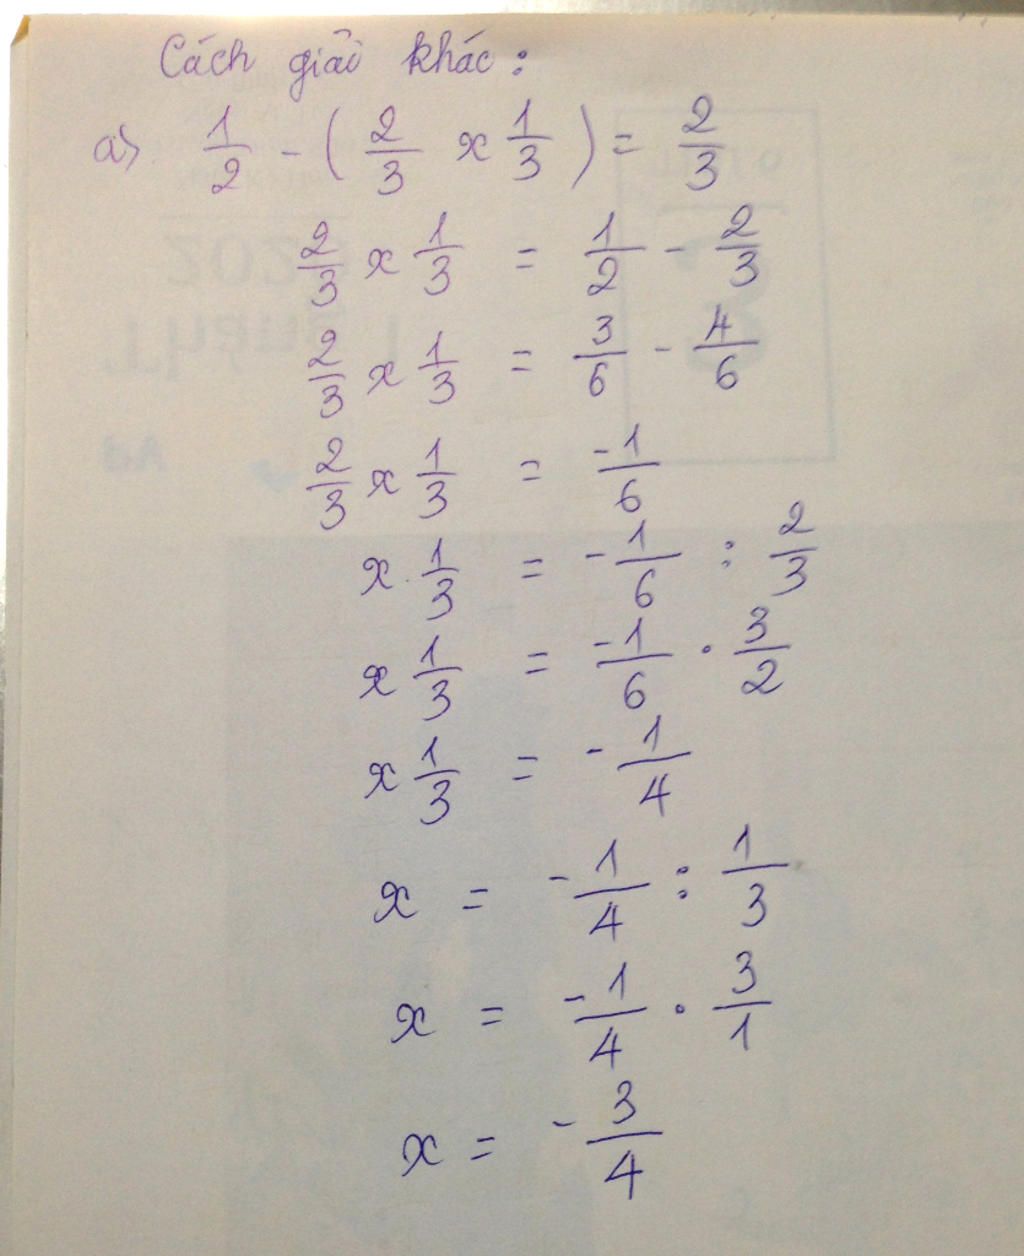 Cách giải khác:
a) 1/2 - (2/3 x 1/3) = 2/3
2/3 x 1/3 = 1/2 - 2/3
2/3 x 1/3 = 3/6 - 4/6
2/3 x 1/3 = -1/6
x 1/3 = -1/6 : 2/3
x 1/3 = -1/6 . 3/2
x 1/3 = -1/4
x = -1/4 : 1/3
x = -1/4 . 3/1
x = -3/4